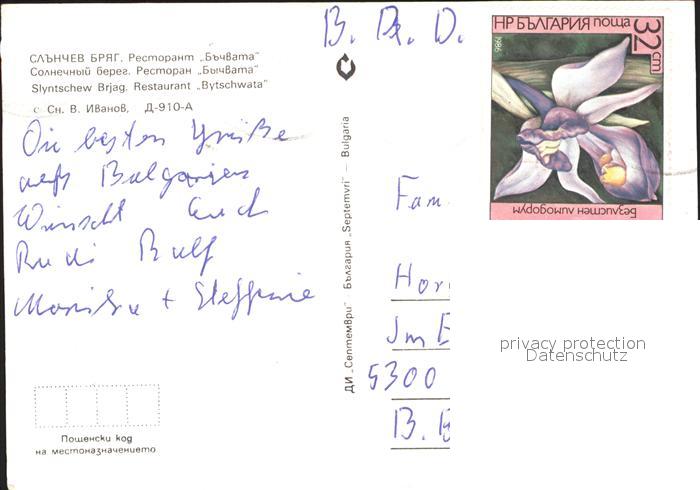 СЛЪНЧЕВ БРЯГ. Ресторант „Бъчвата"
Солнечный берег. Ресторан „Бычвата"
Slyntschew Brjag. Restaurant „Bytschwata"
с Сн. В. Иванов, Д-910-А
Die besten Grüße
aus Bulgarien
Wünscht Euch
Rudi Rulf
Monika + Steffanie
Пощенски код
на местоназначението
ДИ „Септември" България „Septemvri" — Bulgaria
B. R. D.
НР БЪЛГАРИЯ поща
32 cm
1986
Безлистен лимодорум
Fam.
Hor
Im E
5300
B. B
privacy protection
Datenschutz